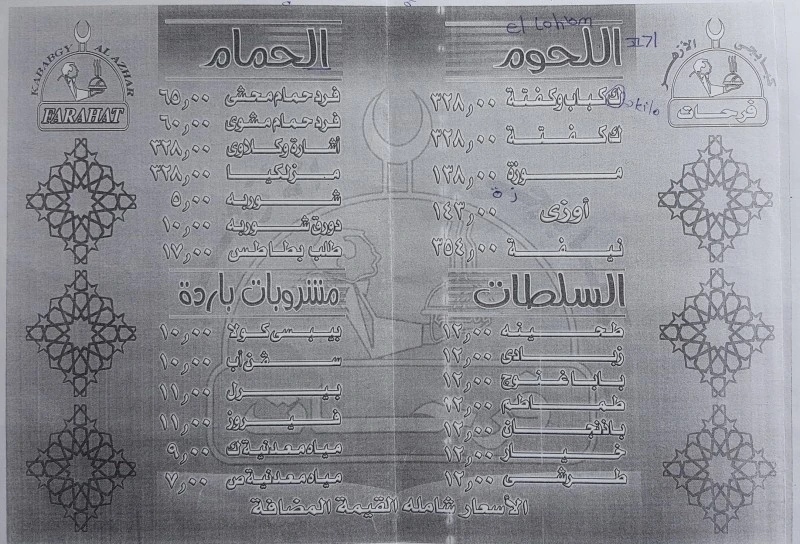 el lohom
اللحوم
ك كباب وكفتة ٣٢٨,٠٠
ك كفتة ٣٢٨,٠٠
موزة ١٣٨,٠٠
زة
أوزى ١٤٣,٠٠
نيفة ٣٥٤,٠٠
السلطات
طحينه ١٢,٠٠
زبادى ١٢,٠٠
بابا غنوج ١٢,٠٠
طماطم ١٢,٠٠
باذنجان ١٢,٠٠
خيار ١٢,٠٠
طرشى ١٢,٠٠
الحمام
فرد حمام محشى ٦٥,٠٠
فرد حمام مشوى ٦٠,٠٠
أشارة وكلاوى ٣٢٨,٠٠
مزلكيا ٣٢٨,٠٠
شوربه ٥,٠٠
دورق شوربه ١٠,٠٠
طلب بطاطس ١٧,٠٠
مشروبات باردة
بيبسى كولا ١٠,٠٠
سفن أب ١٠,٠٠
بيرل ١١,٠٠
فيروز ١١,٠٠
مياه معدنية ك ٩,٠٠
مياه معدنية ص ٧,٠٠
الأسعار شامله القيمة المضافة
كبابجى الأزهر
فرحات
KABABGY ALAZHAR
FARAHAT